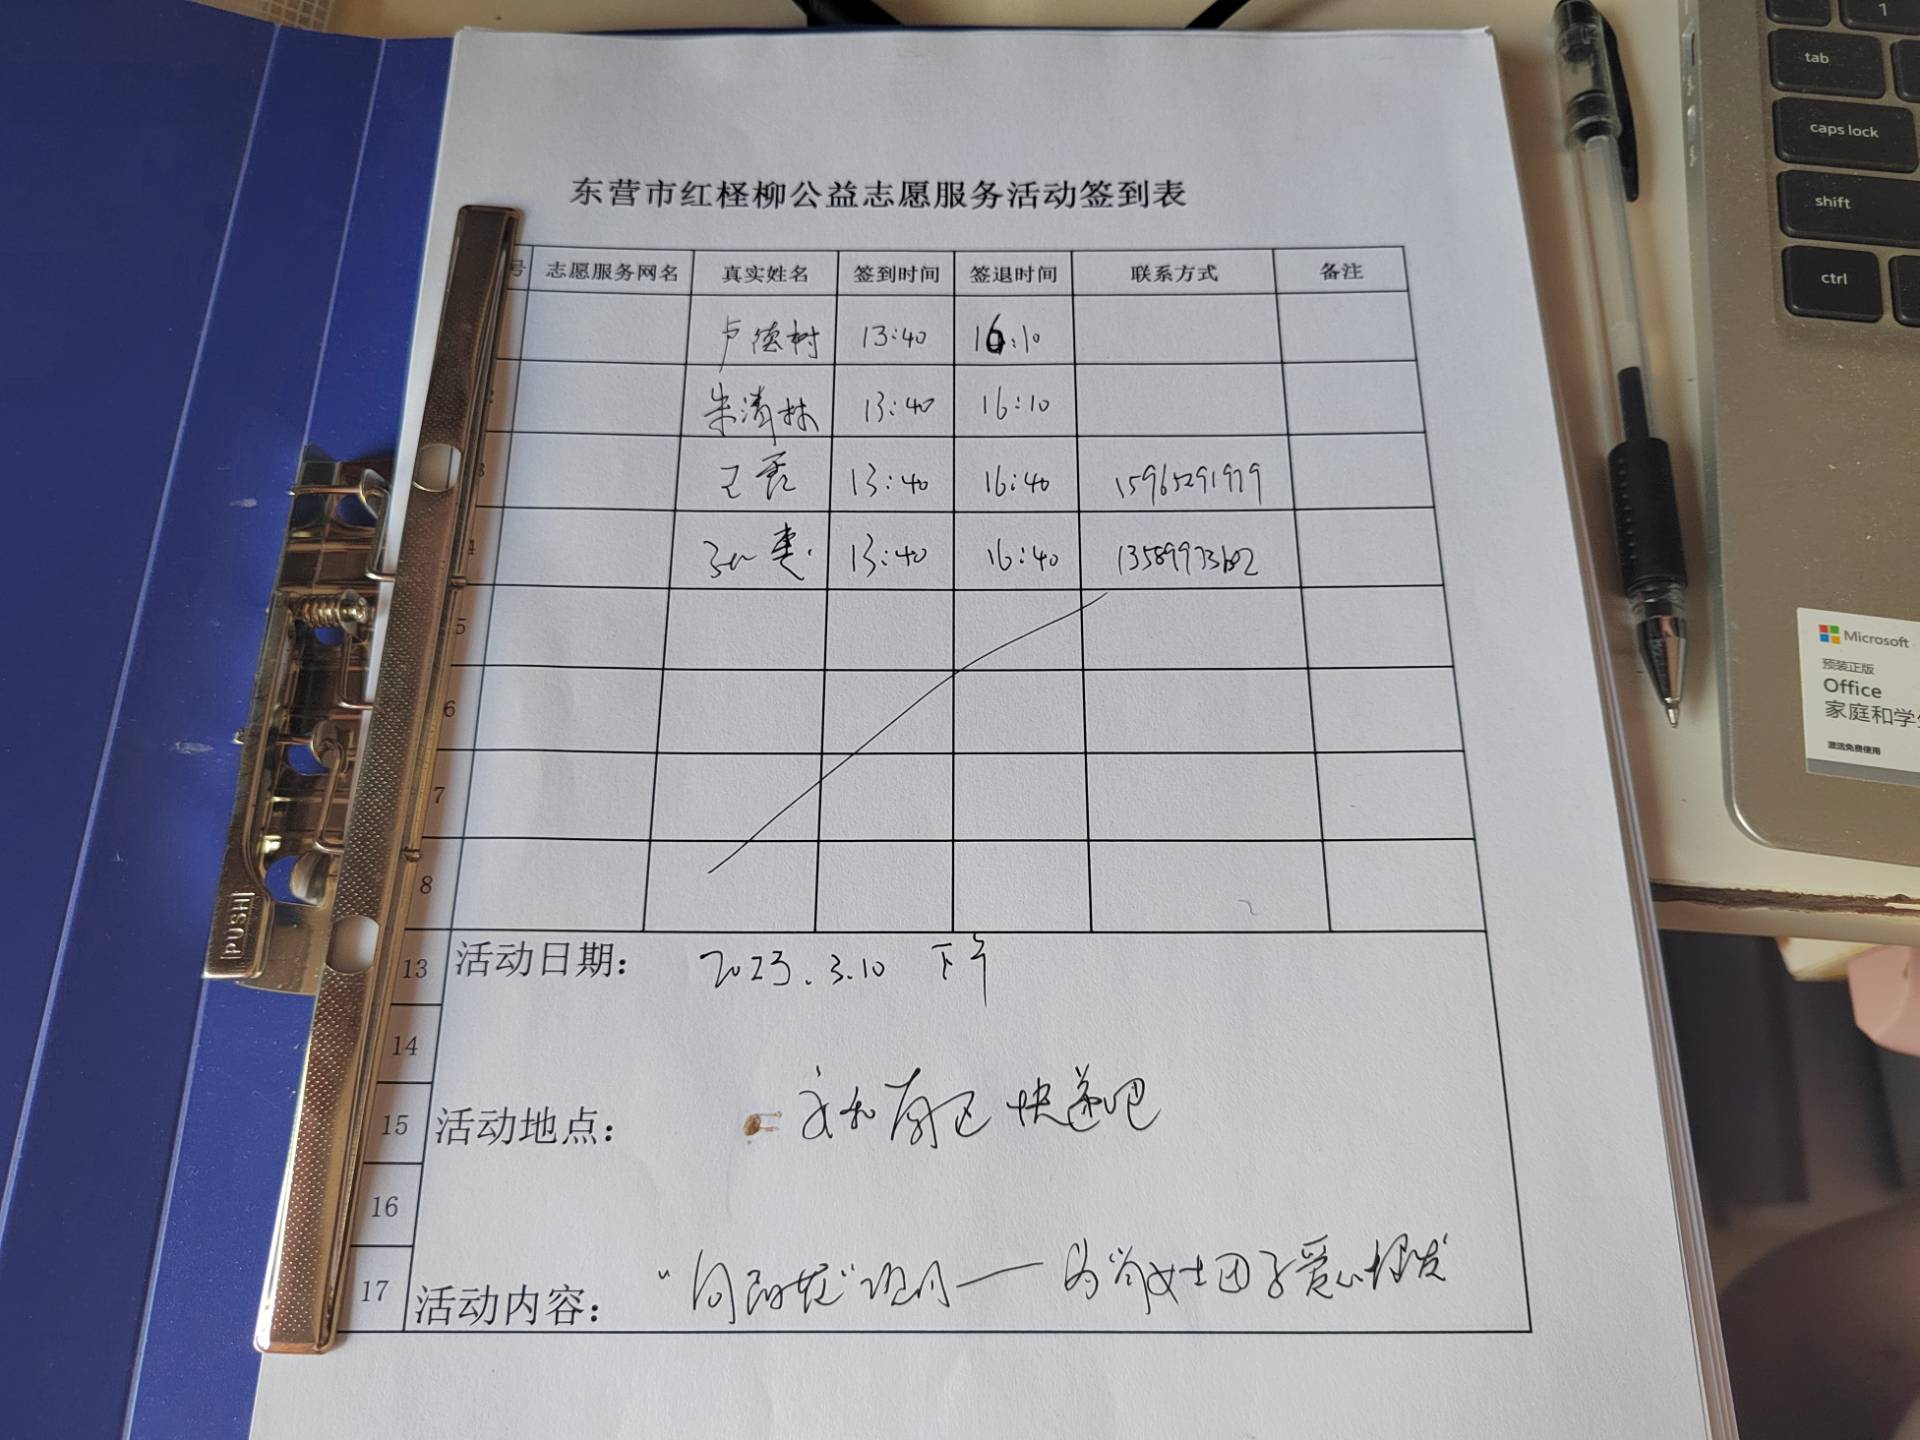 东营市红柽柳公益志愿服务活动签到表
号 志愿服务网名 真实姓名 签到时间 签退时间 联系方式 备注
卢德树 13:40 16:10
2 朱清林 13:40 16:10
3 13:40 16:40 15965291979
4 13:40 16:40
5
6
7
8
13 活动日期: 2023.3.10 下午
14
15 活动地点: 快递吧
16
17 活动内容: 女士团子爱心
PUSH
1
tab
caps lock
shift
ctrl
Microsoft
预装正版
Office
家庭和学生
激活免费使用